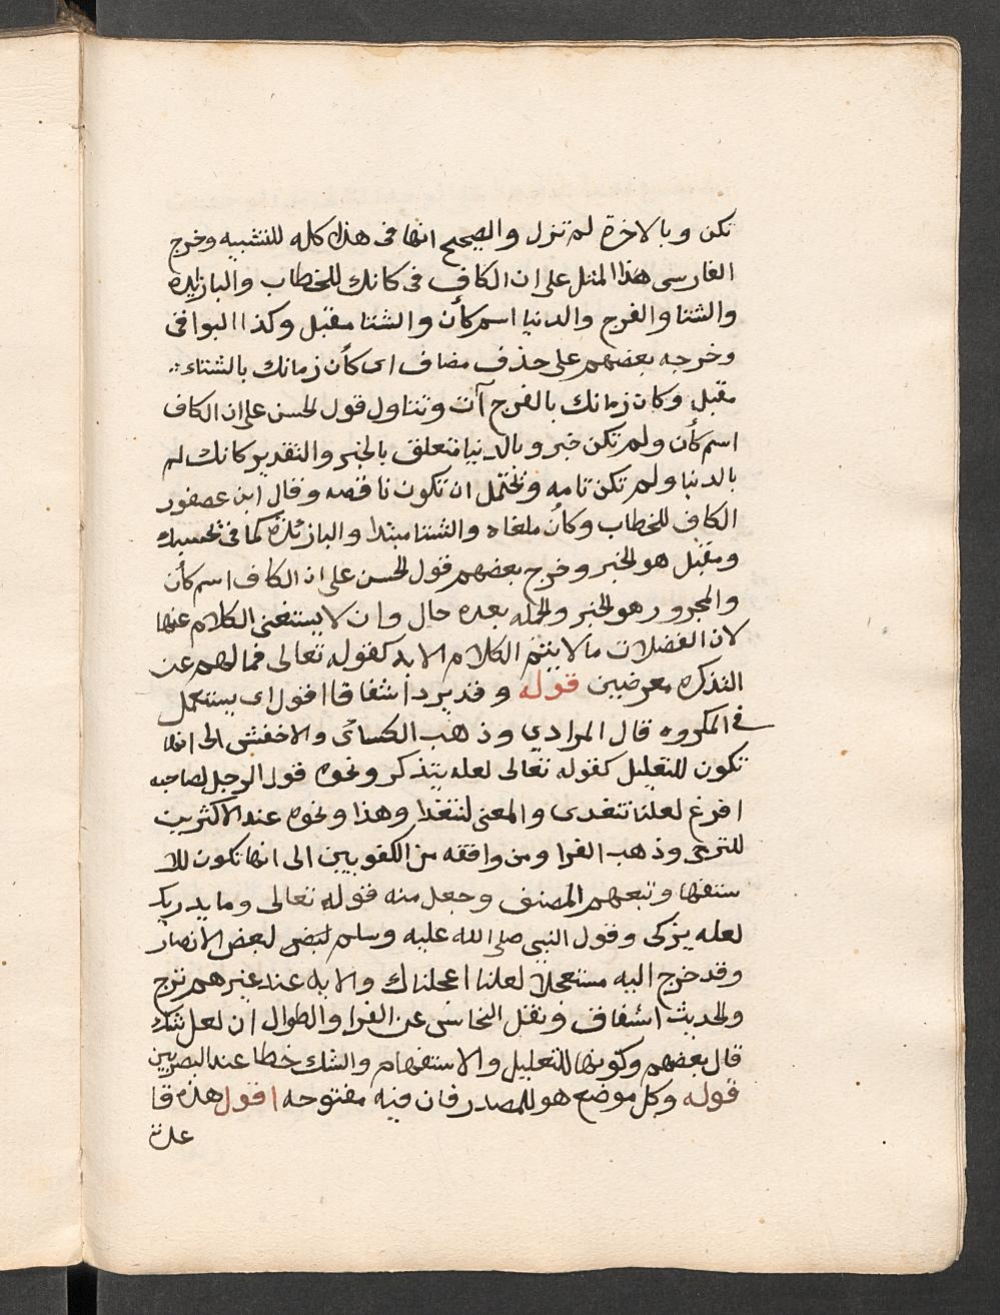 تكن وبالاخرة لم تزل والصحيح انها فى هذا كله للتشبيه وخرج
الفارسى هذا المثل على ان الكاف فى كانك للخطاب والبا زايده
والشتا والفرج والدنيا اسم كأن والشتا مقبل وكذا البواقى
وخرجه بعضهم على حذف مضاف اى كأن زمانك بالشتاء
مقبل وكان زمانك بالفرج آت وتتاول قول الحسن على ان الكاف
اسم كأن ولم تكن خبر وبالدنيا متعلق بالخبر والتقدير كانك لم
بالدنيا ولم تكن تامه وتحتمل ان تكون ناقصه وقال ابن عصفور
الكاف للخطاب وكأن ملغاه والشتا مبتدا والبا زئدة كما فى بحسبك
ومقبل هو الخبر وخرج بعضهم قول الحسن على ان الكاف اسم كأن
والمجرور هو الخبر والجمله بعده حال وان لا يستغنى الكلام عنها
لان الفضلات ما لا يتم الكلام الا به كقوله تعالى فما لهم عن
التذكره معرضين قوله وقد يرد اشفاقا اقول اى يستعمل
فى المكروه قال المرادي وذهب الكسائى والاخفش الى انها
تكون للتعليل كقوله تعالى لعله يتذكر ونحوه قول الرجل لصاحبه
افرغ لعلنا نتغدى والمعنى لنتغدا وهذا ونحوه عند الاكثرين
للترجى وذهب الفرا ومن وافقه من الكفوبيين الى انها تكون للا
ستفها وتبعهم المصنف وجعل منه قوله تعالى وما يدريك
لعله يزكى وقول النبى صلى الله عليه وسلم لبعض الانصار
وقد خرج اليه مستعجلا لعلنا اعجلناك والايه عند غيرهم ترج
والحديث اشفاق ونقل النحاس عن الفرا والطوال ان لعل شك
قال بعضهم وكونها للتعليل والاستفهام والشك خطا عند البصريين
قوله وكل موضع هو للمصدر فان فيه مفتوحه اقول هذه قا
عدة